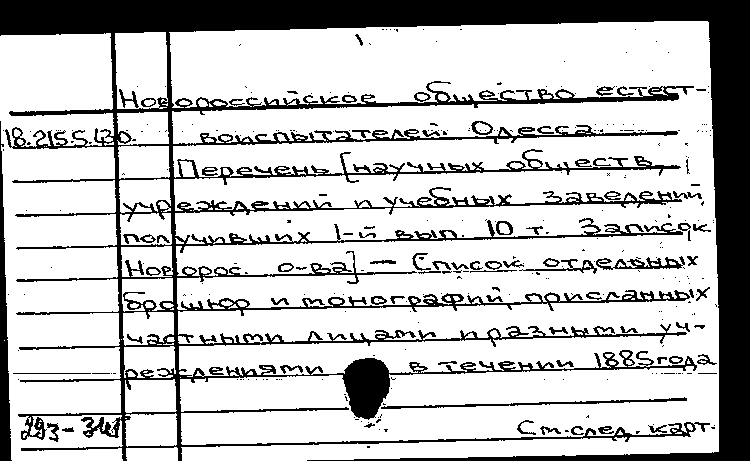 Новороссийское общество естест-
18.215.5.130. воиспытателей. Одесса.
Перечень [научных обществ,
учреждений и учебных заведений,
получивших 1-й вып. 10 т. Записок
Новорос. о-ва] — Список отдельных
брошюр и монографий, присланных
частными лицами и разными уч-
реждениями в течении 1885 года
293-341
Ст. след. карт.